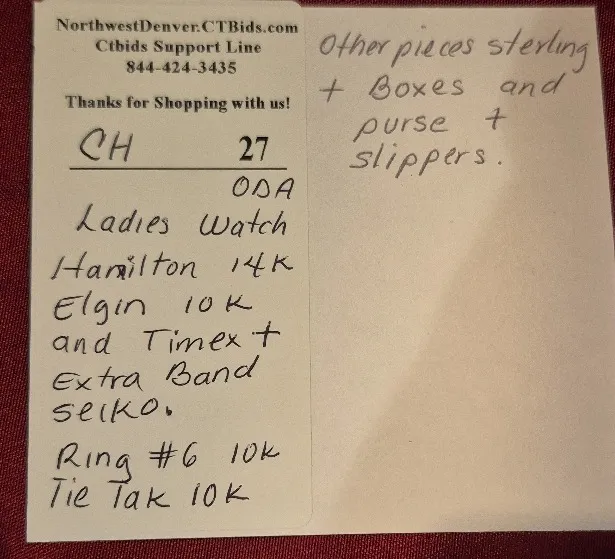 NorthwestDenver.CTBids.com
Ctbids Support Line
844-424-3435
Thanks for Shopping with us!
CH 27
ODA
Ladies Watch
Hamilton 14K
Elgin 10K
and Timex +
Extra Band
seiko.
Ring #6 10K
Tie Tak 10K
Other pieces sterling
+ Boxes and
purse +
slippers.